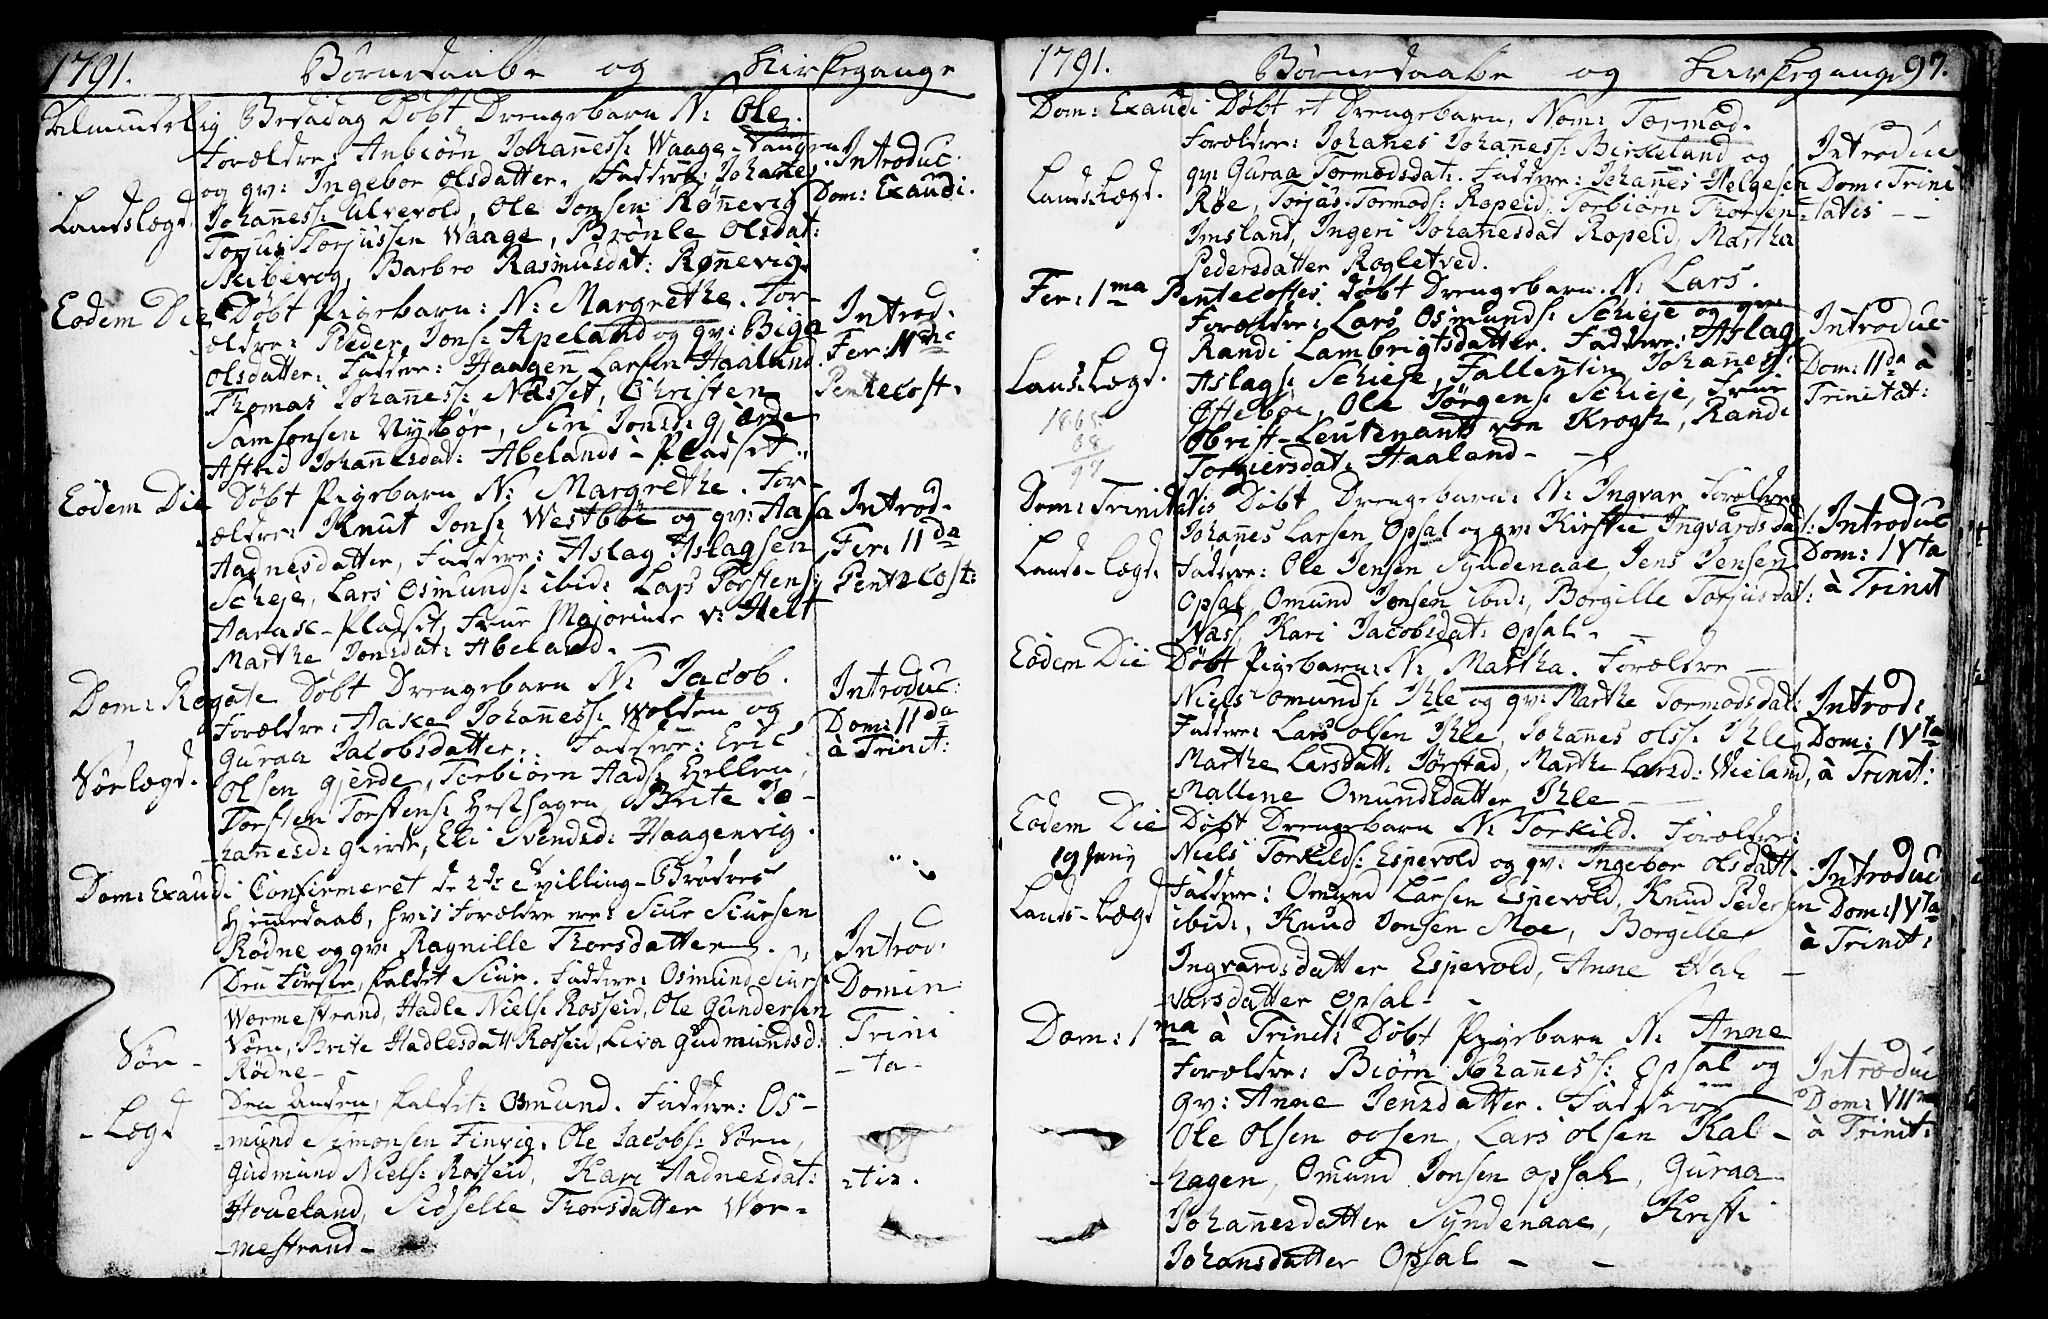 1791. Børnedaabe og Kirkegange
Almindelig Bededag Døbt Drengebarn N: Ole.
Forældre: Anbiørn Johaness: Waage-Vaagen
og qv: Ingebor Olsdatter. Faddere: Johanes
Johaness: Ulvevold, Ole Jonsen Rønevig
Torjus Torjussen Waage, Brønle Olsdat:
Skibevog, Barbro Rasmusdat: Rønevig
Landslægd.
Introduc.
Dom: Exaudi.
Eodem Die Døbt Pigebarn: N: Margrethe. For-
ældre: Peder Jons: Apeland og qv: Biga
Olsdatter: Faddere: Haagen Larsen Haaland.
Thomas Johaness: Næsset, Christen
Samsonsen Nybør, Siri Jonsd: gjærde
Astrid Johanesdat: Abelands-Pladset
Introd.
Fer: 11de
Pentecost.
Eodem Die Døbt Pigebarn N: Margrethe. For-
ældre: Knut Jons: Westbøe og qv: Aasa
Aadnesdatter, Faddere: Aslag Aslagsen
Scheje, Lars Osmunds: ibid: Lars Torstens:
Aarax-Pladset, Frue Majorinde v: Helt
Marthe Jonsdat: Abeland.
Introd.
Fer: 11da
Pentecost:
Dom: Rogate Døbt Drengebarn N: Jacob.
Forældre: Aake Johaness: Wolden og
Guraa Jacobsdatter. Faddere: Eric
Olsen gjerde, Torbiørn Aads: Hellen,
Torsten Torstens: Hesthagen, Brite Jo-
hanesd: gierde, Eli Svendsd: Haagenvig.
Sørlægd.
Introduc:
Dom: 11da
à Trinit:
Dom: Exaudi Confirmeret de 2de Tvilling-Brødres
Hiemedaab, hvis Forældre ere: Siur Siursen
Rødne og qv: Ragnille Thorsdatter.
Den Første, kaldet Siur. Faddere: Osmund Siurs:
Wormestrand, Hadle Niels: Rosseid, Ole Gundersen
Vørn, Brite Hadlesdatt: Rosseid, Liva Gudmundsd:
Rødne
Den Anden, kaldet: Osmund. Faddere: Os-
mund Simonsen Finvig, Ole Jacobs: Vørn,
Gudmund Niels: Rosseid, Kari Aadnesdat:
Houeland, Sidselle Thorsdatter Wor-
mestrand
Sør-
Lægd
Introd:
Domin:
Trini
-ta-
-tis.
1791. Børnedaabe og Kirkegange 97.
Dom: Exaudi Døbt et Drengebarn, Nom: Tormod.
Forældre: Johanes Johaness: Birkeland og
qv: Guraa Tormodsdat: Faddere: Johanes Helgesen
Røe, Torjus Tormods: Ropeid, Torbiørn Thorsen
Imsland, Ingeri Johanesdat Ropeid, Martha
Pedersdatter Rogletved.
Lands Lægd.
Introduc
Dom: Trini
tatis --
Fer: 1ma Pentecostes. Døbt Drengebarn. N: Lars.
Forældre: Lars Osmunds: Schieje og qv:
Randi Lambrigtsdatter. Faddere: Aslag
Aslags: Schieje, Fallentin Johaness:
Østebøe, Ole Jørgens: Schieje, Frue
Obrist-Leutenant von Krogh, Randi
Torgiersdat: Haaland-
Lands Lægd.
1865
Introduc
Dom: 11da à
Trinitat:
Dom: Trinitatis Døbt Drengebarn: N: Ingvar Forældre
Johanes Larsen Opsal og qv: Kirstie Ingvardsdat:
Faddere: Ole Jensen Syndenaae Jens Jensen
Opsal Omund Jonsen ibid:, Borgille Torjusdat:
Nass: Kari Jacobsdat: Opsal-
Lands-Lægd.
Introduc
Dom: 1Vta
à Trinit
Eodem Die Døbt Pigebarn: N: Martha. Forældre
Niels Omunds: Ihle og qv: Marthe Tormodsdat:
Faddere: Lars Olsen Ihle, Johanes Olss: Ihle,
Marthe Larsdatt: Jørstad, Marthe Larsd: Wieland,
Mallene Omundsdatter Ihle
Introd:
Dom: 1Vta
à Trinit:
Eodem Die Døbt Drengebarn N: Torkild. Forældre:
Niels Torkilds: Espevold og qv: Ingebor Olsdatt:
Faddere: Omund Larsen Espevold, Knud Pedersen
ibid:, Knud Jonsen Moe, Borgille
Ingvardsdatter Espevold, Anne Hal-
vorsdatter Opsal-
19 Junij
Lands-Lægd
Introduc
Dom: 1Vta
à Trinit:
Dom: 1ma à Trinit: Døbt Pigebarn N: Anne
Forældre: Biørn Johaness: Opsal og
Qv: Anne Jensdatter. Faddere
Ole Olsen Opsen, Lars Olsen Kal-
hagen, Omund Jonsen Opsal, Guraa
Johanesdatter Syndenaae, Kristi
Johansdatter Opsal
Introduc
Dom: VIIma
à Trinit: